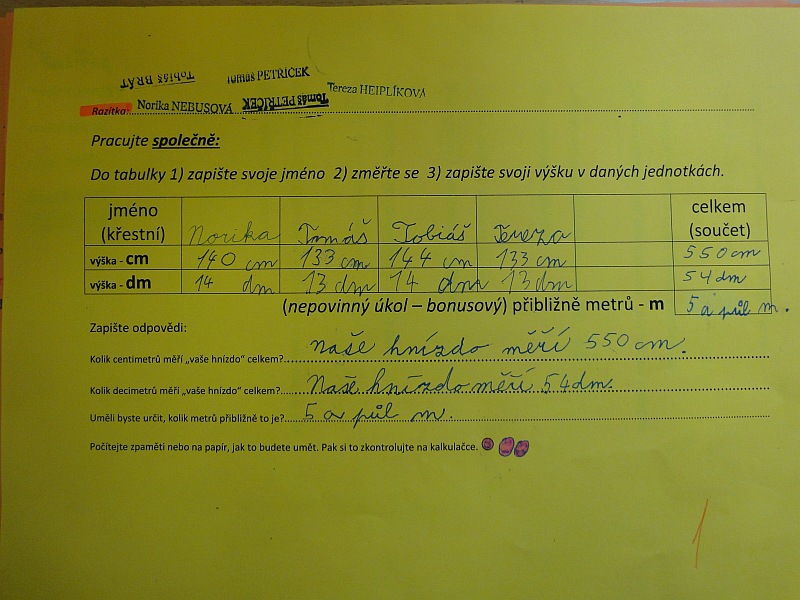 Tobiáš BRÁT Tomáš PETŘÍČEK Tereza HEJPLÍKOVÁ
Razítka: Norika NEBUSOVÁ Tomáš PETŘÍČEK
Pracujte společně:
Do tabulky 1) zapište svoje jméno 2) změřte se 3) zapište svoji výšku v daných jednotkách.
jméno (křestní) Norika Tomáš Tobiáš Tereza celkem (součet)
výška - cm 140 cm 133 cm 144 cm 133 cm 550 cm
výška - dm 14 dm 13 dm 14 dm 13 dm 54 dm
(nepovinný úkol – bonusový) přibližně metrů - m 5 a půl m.
Zapište odpovědi:
Kolik centimetrů měří „vaše hnízdo“ celkem? naše hnízdo měří 550 cm.
Kolik decimetrů měří „vaše hnízdo“ celkem? Naše hnízdo měří 54 dm.
Uměli byste určit, kolik metrů přibližně to je? 5 a půl m.
Počítejte zpaměti nebo na papír, jak to budete umět. Pak si to zkontrolujte na kalkulačce.
1